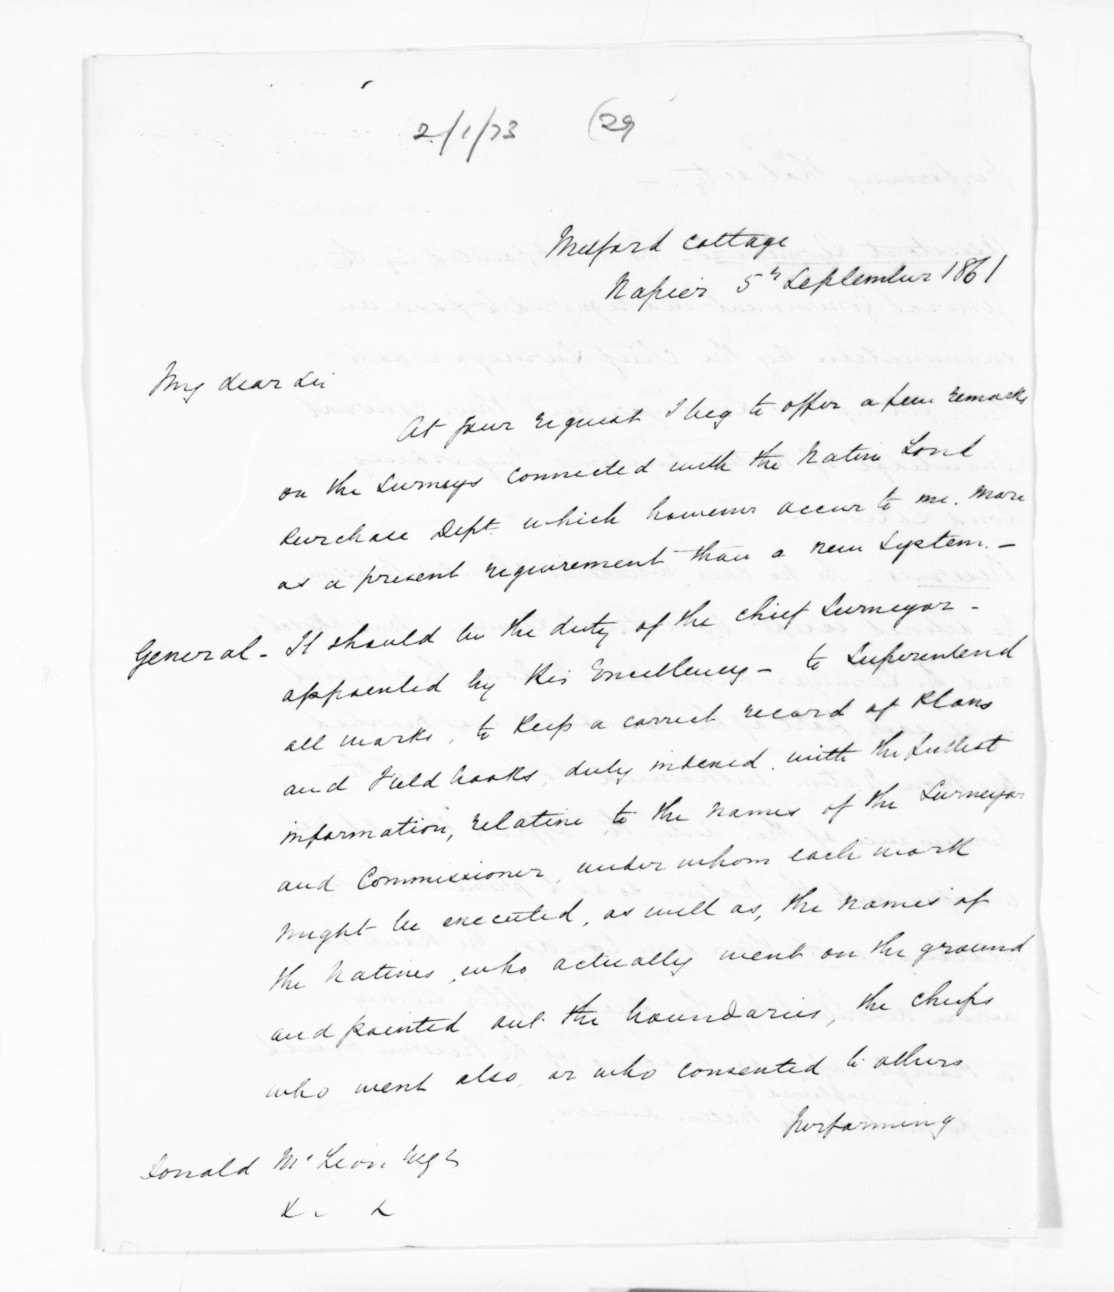 2/1/73 (29
Milford Cottage
Napier 5th September 1861
My dear Sir
At your request I beg to offer a few remarks
on the Surveys connected with the Native Land
Purchase Dept. which however occur to me. more
as a present requirement than a new System. —
General - It should be the duty of the Chief Surveyor -
appointed by His Excellency - to Superintend
all marks, to keep a correct record of Plans
and Field books, duly indexed. with the fullest
information, relative to the names of the Surveyor
and Commissioner, under whom each work
might be executed, as well as, the names of
the Natives, who actually went on the ground
and pointed out the boundaries, the chiefs
who went also, or who consented to others
performing
Donald McLean Esqr
&. &